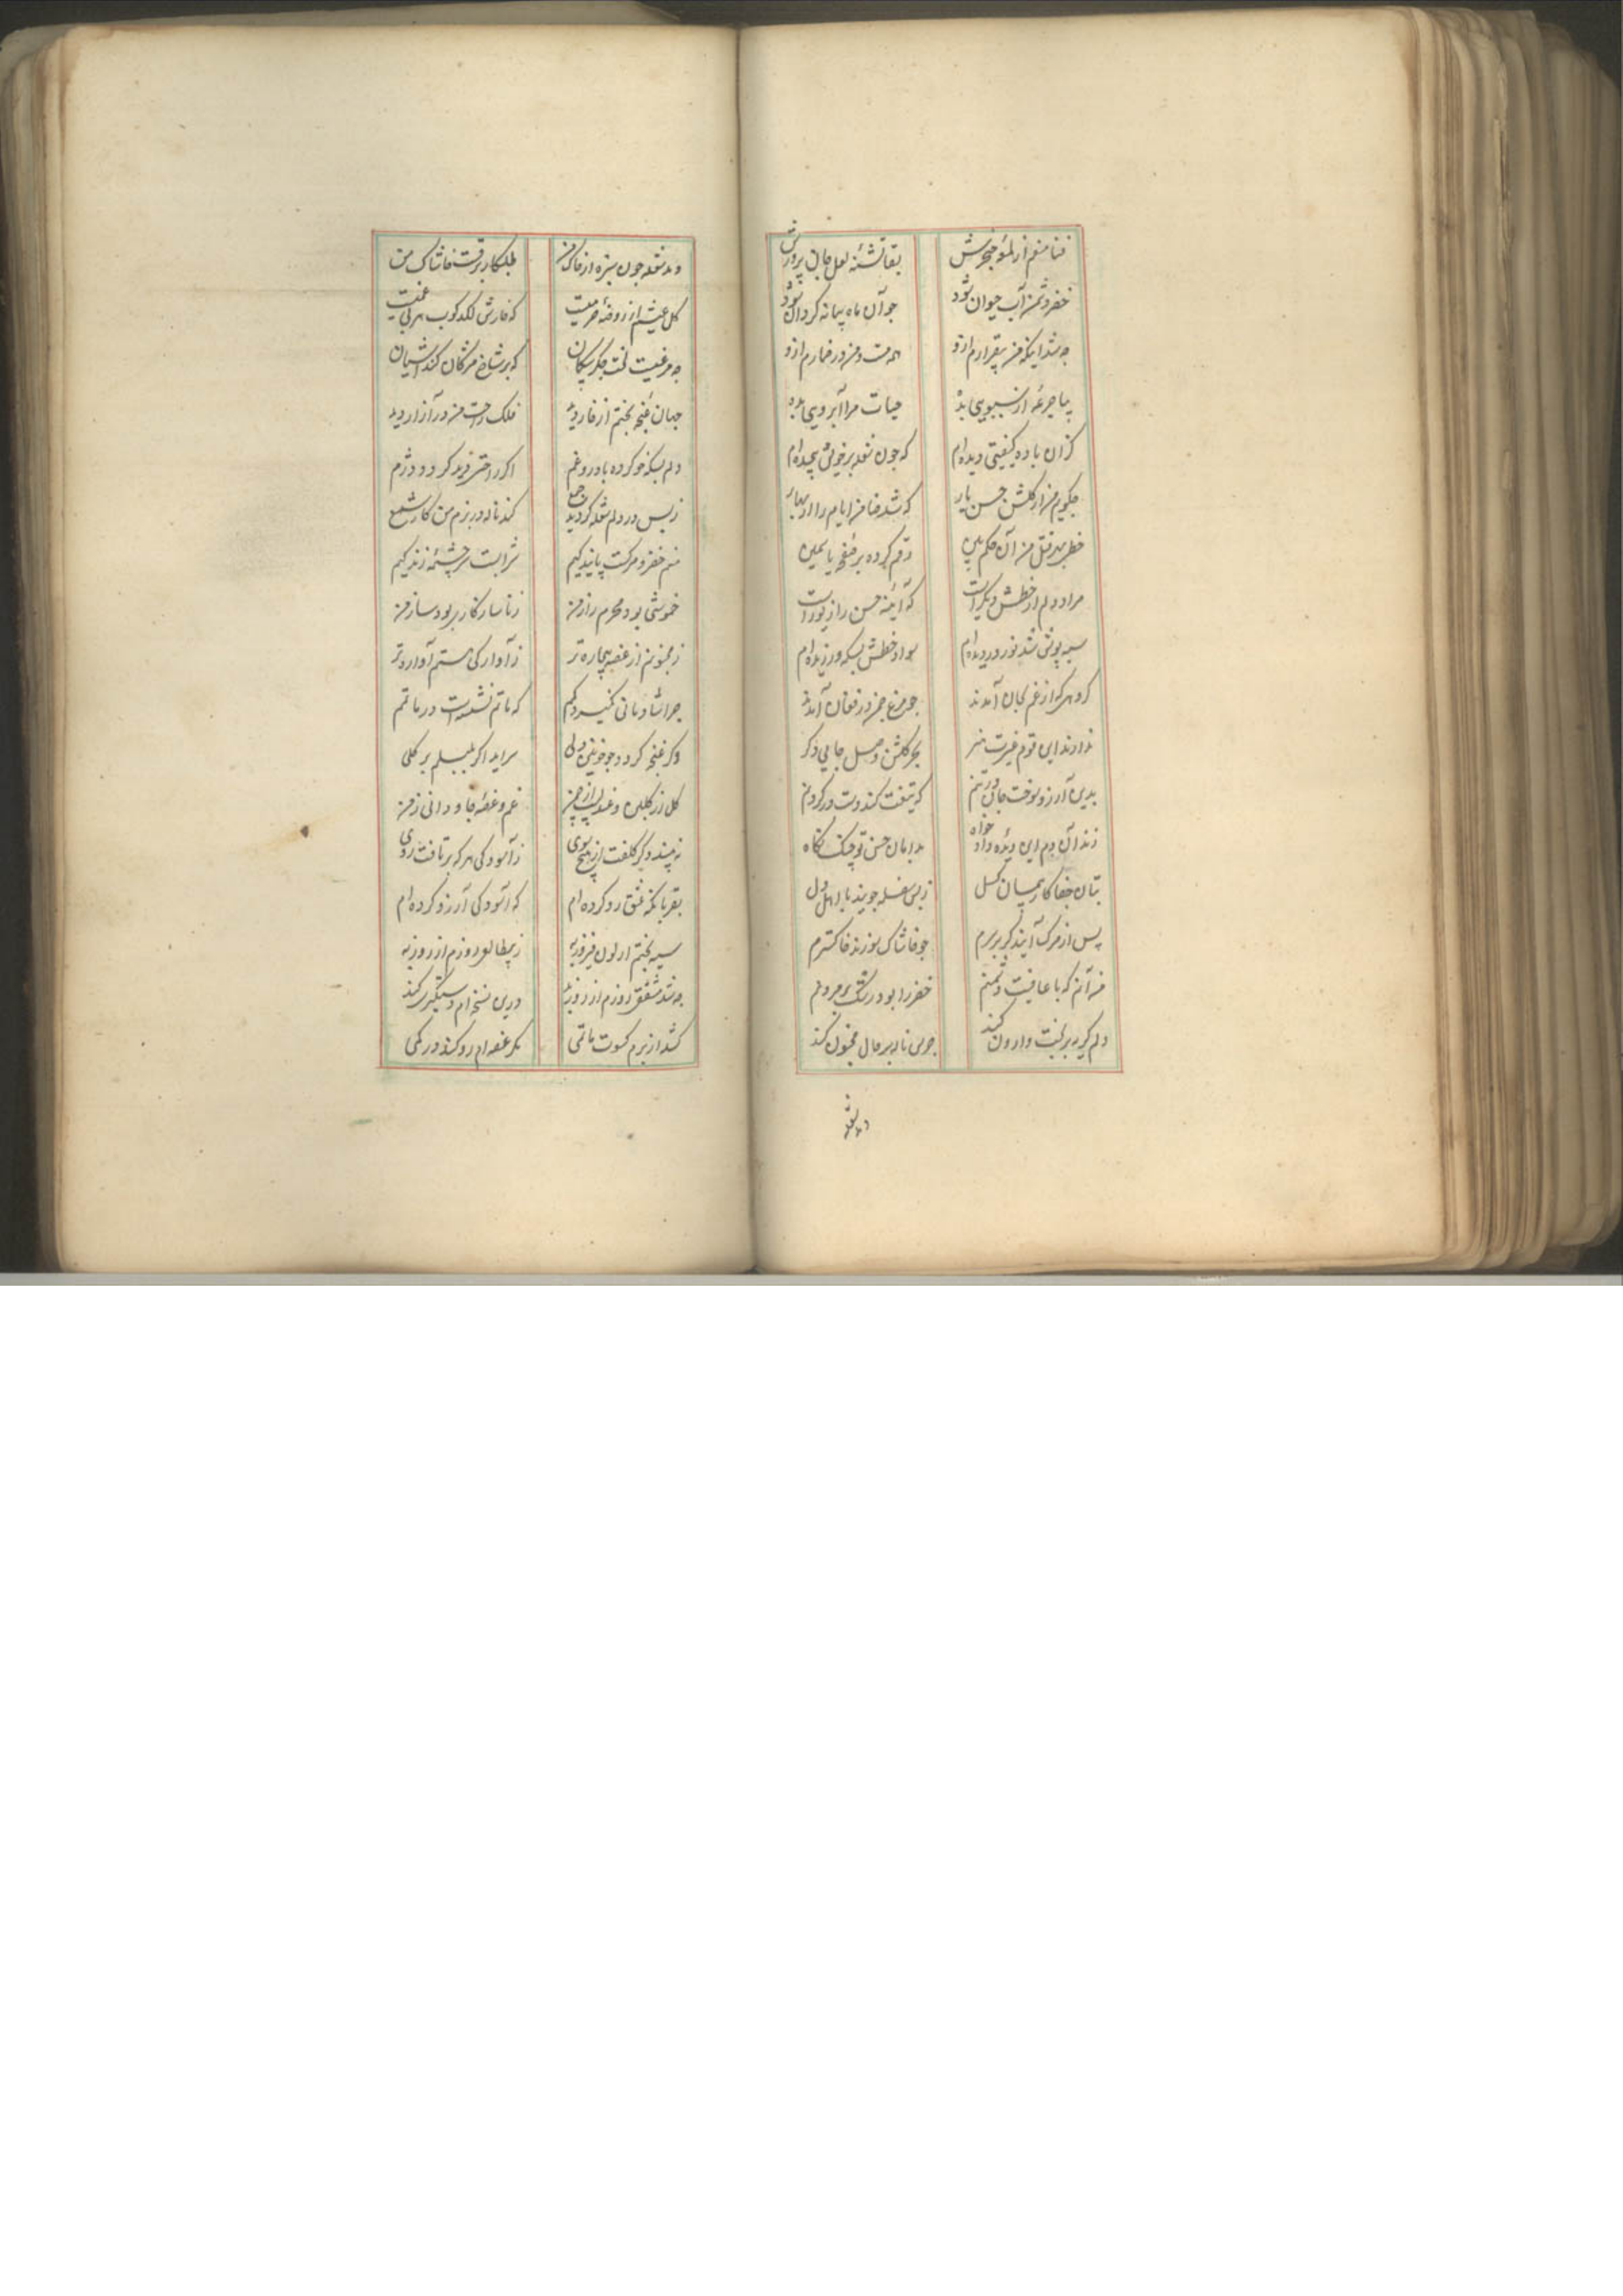 فنا منعم از لمؤ خنجرش
بقا تشنه لعل جان پرورش
خضر دشمن آب حیوان شود
چو آن ماه پیمانه کردان شود
چه شد اینکه من بیقرارم ازو
همه مست و من در خمارم ازو
بیا جرعهٔ از سبویی بده
حیات مرا آبرویی بده
کزان باده کیفیتی دیده‌ام
که چون شعله بر خویش پیچیده‌ام
چکویم من از کلشن حسن یار
که شد ضامن ایام را از بهار
خطر بهر قتل من آن حکم بین
رقم کرده بر صفحهٔ یاسمین
مرا در دلم از خطش دیکر است
که آئینهٔ حسن را زیور است
سیه پوش شد نور در دیده‌ام
سواد خطش بسکه ورزیده‌ام
کروهی که از غم بجان آمدند
چو مرغ چمن در فغان آمدند
ندارند این قوم غیرت هنر
بجز کلشن وصل جایی دکر
بدین آرزو سوخت جان در تنم
که تیغت کند دست در کردنم
زند آن دم این دیده داد خواه
بدامان حسن تو چنک نکاه
بتان جفا کار پیمان کسل
ز بس شعله جویند با اهل دل
پس از مرک آیند کر بر سرم
چو خاشاک سوزند خاکسترم
من آنم که با عافیت دشمنم
خضر را بود رشک بر مردنم
دلم کریه بر بخت وارون کند
جرس ناله بر حال مجنون کند
دمد شعله
دمد شعله چون سبزه از خاک من
طلبکار برقست خاشاک من
کل عیشم از روضهٔ خرمیست
که خارش لکدکوب هر بی غمیست
چه مرغیست لخت جکر بیکان
که بر شاخ مژکان کند آشیان
جهان غنچهٔ بختم از خار دید
فلک راحت من در آزار دید
دلم بسکه خو کرده با درد و غم
اکر راحتی دید کردد دژم
ز بس در دلم شعله کردید جمع
کند ناله در بزم من کار شمع
منم خضر و مرکست پایندکیم
شرابست سرچشمهٔ زندکیم
خموشی بود محرم راز من
ز ناسازکاری بود ساز من
ز مجنونم از غصه بیچاره‌تر
ز آوارکی هستم آواره‌تر
چرا شادمانی نمیرد ز غم
که ماتم نشسته است در ماتمم
وکر غنچه کردد چو خونین دلی
سراید اکر بلبلم بر کلی
کل از کلبن و عندلیب از چمن
غم و غصهٔ جاودانی ز من
نه بیند دکر کلفت از هیچ سوی
ز آسودکی هر که برتافت روی
بقربانکه عشق رو کرده‌ام
که آسودکی آرزو کرده‌ام
سیه بختم از لون فیروز به
ز بی طالعی روزم از روز به
چه شد مشفق روزم از روزیه
درین نسخه‌ام دستکیری کند
کشد از برم کسوت ماتمی
مکر غصه‌ام رو کند در کمی